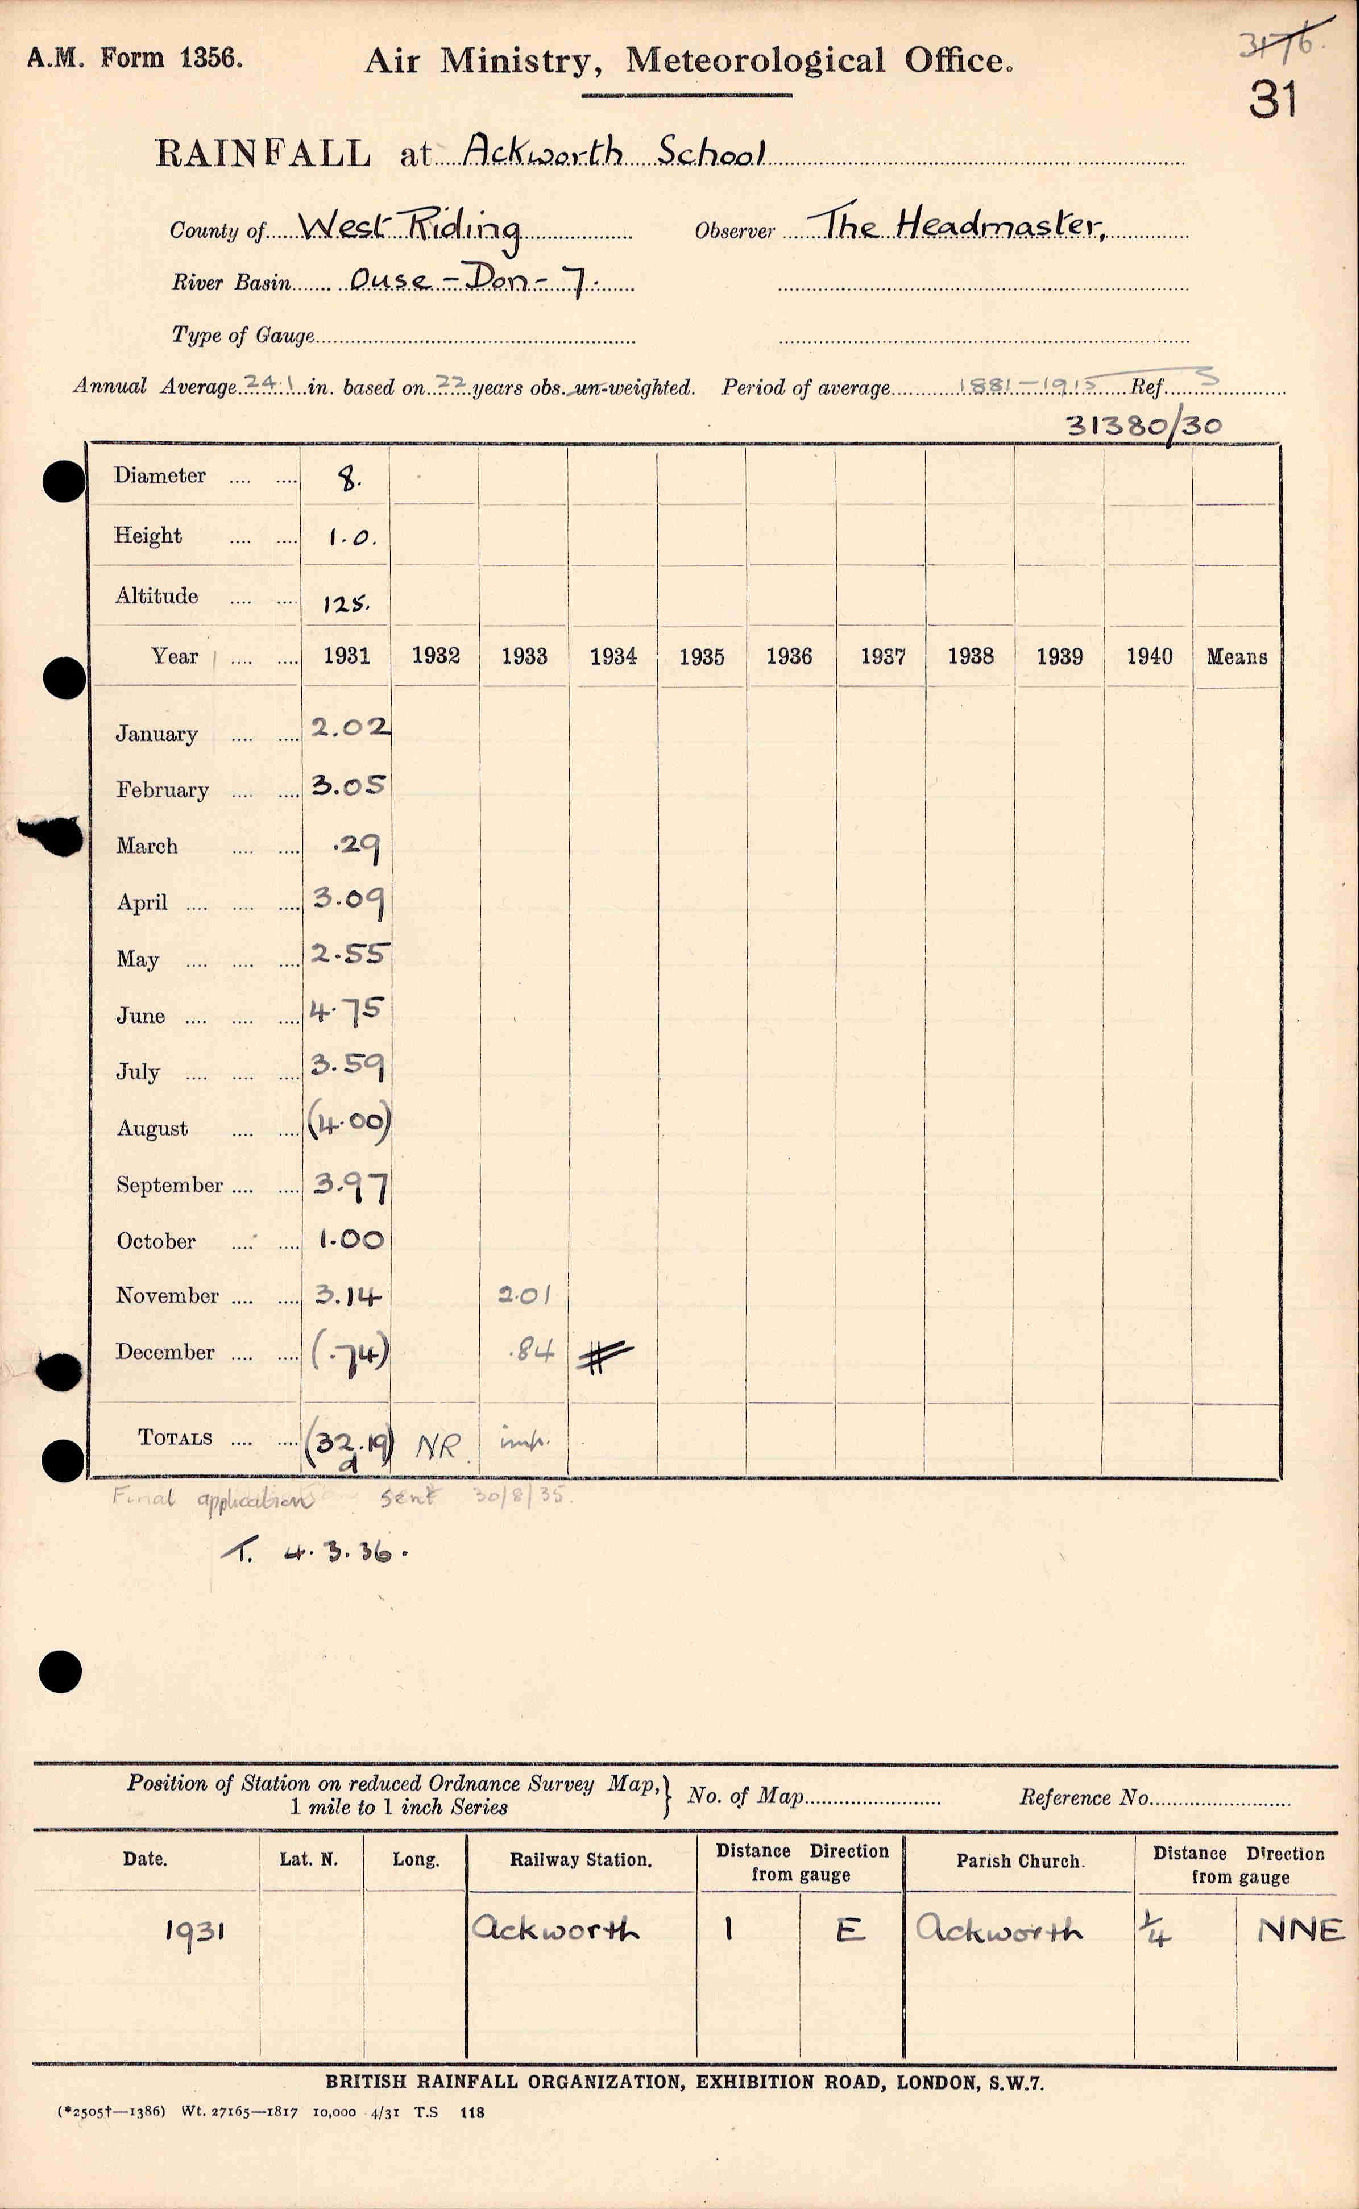 A.M. Form 1356.
Air Ministry, Meteorological Office.
3176.
31
RAINFALL at Ackworth School
County of West Riding Observer The Headmaster,
River Basin Ouse - Don - 7.
Type of Gauge
Annual Average 24.1 in. based on 22 years obs. un-weighted. Period of average 1881-1915 Ref. S
31380/30
Diameter 8.
Height 1.0.
Altitude 125.
Year 1931 1932 1933 1934 1935 1936 1937 1938 1939 1940 Means
January 2.02
February 3.05
March .29
April 3.09
May 2.55
June 4.75
July 3.59
August (4.00)
September 3.97
October 1.00
November 3.14 2.01
December (.74) .84 #
TOTALS (32.19) NR. imp.
a
Final application sent 30/8/35.
T. 4.3.36.
Position of Station on reduced Ordnance Survey Map,} No. of Map Reference No.
1 mile to 1 inch Series
Date. Lat. N. Long. Railway Station. Distance Direction from gauge Parish Church. Distance Direction from gauge
1931 Ackworth 1 E Ackworth 1/4 NNE
BRITISH RAINFALL ORGANIZATION, EXHIBITION ROAD, LONDON, S.W.7.
(*2505†—1386) Wt. 27165—1817 10,000 4/31 T.S 118